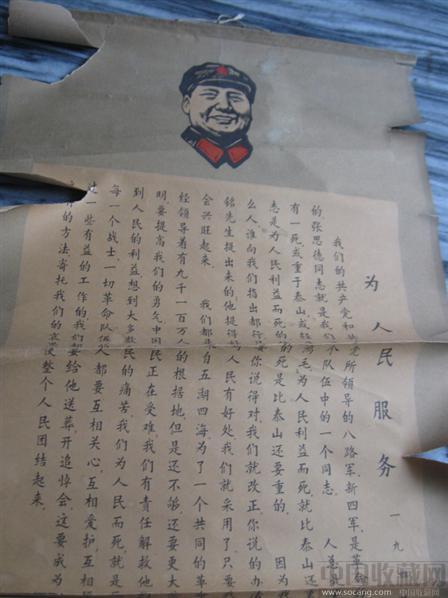 为人民服务 一九
我们的共产党和党所领导的八路军、新四军,是革
的.张思德同志就是我们个队伍中的一个同志. 人总
有一死,或重于泰山或轻鸿毛.为人民利益而死就比泰山还
志是为人民利益而死的的死是比泰山还要重的. 因为我
么人谁向我们指出都行要你说得对,我们就改正.你说的办
铭先生提出来的他提得人民有好处我们就采用了.只要我
会兴旺起来. 我们都自五湖四海为了一个共同的革
经领导着有九千一百万人的根据地.但是还不够还要更大
明.要提高我们的勇气中国民正在受难我们有责任解救他
到人民的利益.想到大多数民的痛苦我们为人民而死就是
每一个战士,一切革命队伍人都要互相关心,互相爱护,互相
一些有益的工作的我们都要给他送葬开追悼会.这要成为
的方法寄托我们的哀使整个人民团结起来.
中国收藏网
www.socang.com 中国收藏网